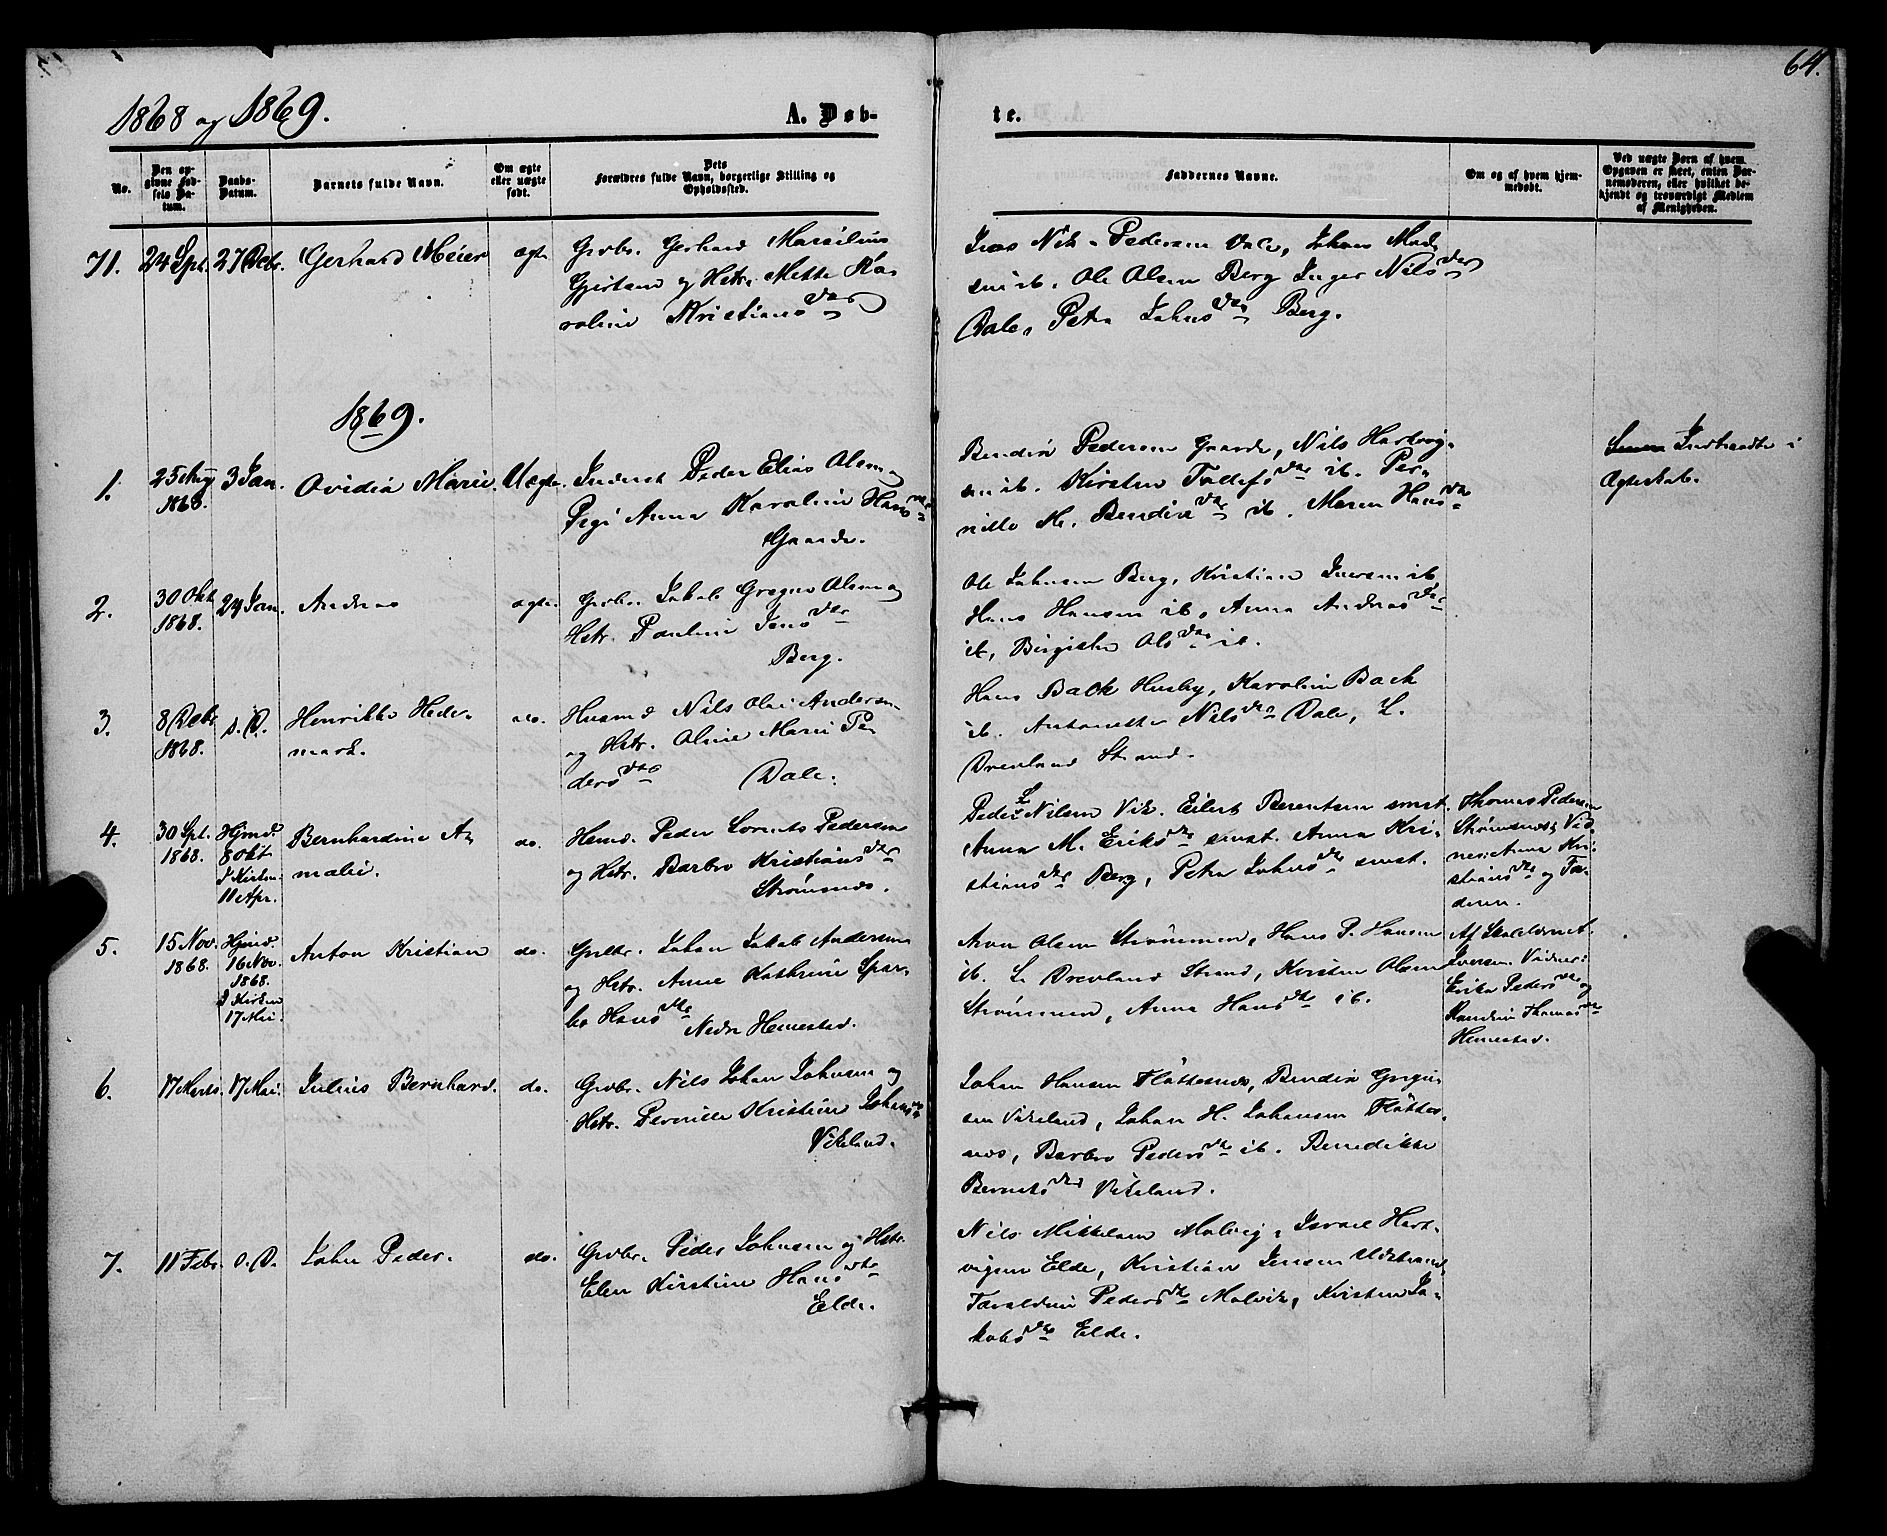 64.
1868 og 1869.
A. Døb-
te.
No.
Den op-
givne Fød-
sels Da-
tum.
Daabs-
Datum.
Barnets fulde Navn.
Om ægte
eller uægte
født.
Dets
Forældres fulde Navn, borgerlige Stilling og
Opholdssted.
Faddernes Navne.
Om og af hvem hjem-
medøbt.
Ved uægte Børn af hvem
Opgaven er skeet, enten Bar-
nemoderen, eller hvilket be-
kjendt og troværdigt Medlem
af Menigheden.
71.
24 Spt.
27 Debr.
Gerhard Meier
ægte
Grbr. Gerhard Marsilius
Gjertsen og Hstr. Mette Ka-
roline Kristiansdtr
Nils Pedersen Dale, Johan Mad-
sen ib. Ole Olsen Berg Inger Nilsdtr
Dale, Petra Johnsdtr Berg.
1869.
1.
25 Aug
1868.
3 Jan.
Ovidia Marie.
Uægte.
Inderst Peder Elias Olsen og
Pige Anna Karoline Hansdtr
Gaarde.
Bendix Pedersen Gaarde, Nils Hartvig-
sen ib. Kirsten dtr ib. Per-
nille M. Bendixdtr ib. Maren Hansdtr
Indtraadte i
Ægteskab.
2.
30 Okt
1868.
24 Jan.
Andreas
ægte.
Grbr. Jakob Gregus Olsen og
Hstr. Pauline Jensdtr
Berg.
Ole Johnsen Berg, Kristian Iversen ib,
Hans Hansen ib, Anna Andreasdtr
ib, Birgitte Olsdtr ib.
3.
8 Debr
1868.
s. D.
Henrikke Hede-
mark.
do.
Husmd Nils Olai Andersen
og Hstr. Oline Marie Pe-
dersdtr Dale.
Hans Back Husby, Karoline Back
ib. Antonette Nilsdtr Dale, L.
Drevland Strand.
4.
30 Spt.
1868.
Hjmd.
8 Okt
I Kirken
11 Apr.
Bernhardine A-
malie.
do.
Husmd. Peder Lornts Pedersen
og Hstr. Barbro Kristiansdtr
Strømsnes.
Peder L Nilsen Vik. Eilert Berentsen smst.
Anna M. Eriksdtr smst. Anna Kri-
stiansdtr Berg, Petra Johnsdtr smst.
Thomas Pedersen
Strømsnes, Vid-
ner: Anna Kri-
stiansdtr og Fa-
deren.
5.
15 Nov.
1868.
Hjmd.
16 Nov.
1868.
I Kirken
17 Mai.
Anton Kristian
do.
Grbr. Johan Jakob Andersen
og Hstr. Anne Kathrine Spar-
bo Hansdtr
Nedre Hemestad.
Aron Olsen Strømmen, Hans P. Hansen
ib. L Drevland Strand, Kirsten Olsen
Strømmen, Anna Hansdtr ib.
Af Skolelærer A.
Iversen. Vidner:
Erika Pedersdtr og
Thomasdtr
Hemestad.
6.
17 Marts.
17 Mai.
Julius Bernhard.
do.
Grbr. Nils Johan Johnsen og
Hstr. Pernille Kristine Johansdtr
Vikeland.
Johan Hansen Fløttenes, Bendix Gregu-
sen Vikeland, Johan H. Johansen Fløtte-
nes, Barbro Pedersdtr ib. Benedikte
Berntsdtr Vikeland.
7.
11 Febr.
s. D.
John Peder.
do.
Grbr. Peder Johnsen og Hstr.
Elen Kirstine Hansdtr
Elde.
Nils Mikkelsen Molvig, Israel Hart-
vigsen Elde, Kristian Jensen Udstrand,
Taraldine Pedersdtr Molvik, Kirsten Ja-
kobsdtr Elde.